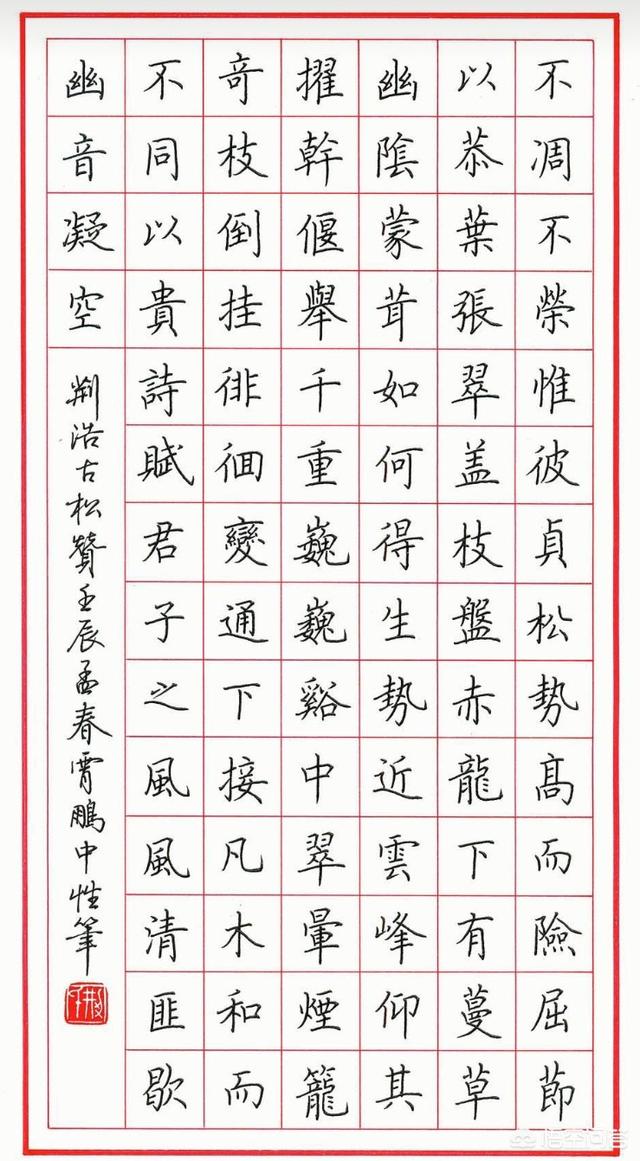 不凋不榮惟彼貞松勢髙而險屈節
以恭葉張翠盖枝盤赤龍下有蔓草
幽陰蒙茸如何得生勢近雲峰仰其
擢幹偃舉千重巍巍谿中翠暈煙籠
竒枝倒挂徘徊變通下接凡木和而
不同以貴詩賦君子之風風清匪歇
幽音凝空
荆浩古松贊壬辰孟春霄鵬中性筆
悟空问答